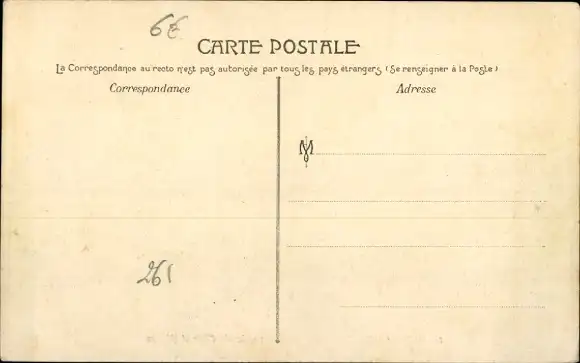 6€
CARTE POSTALE
La Correspondance au recto n'est pas autorisée par tous les pays étrangers (Se renseigner à la Poste)
Correspondance
Adresse
M
261